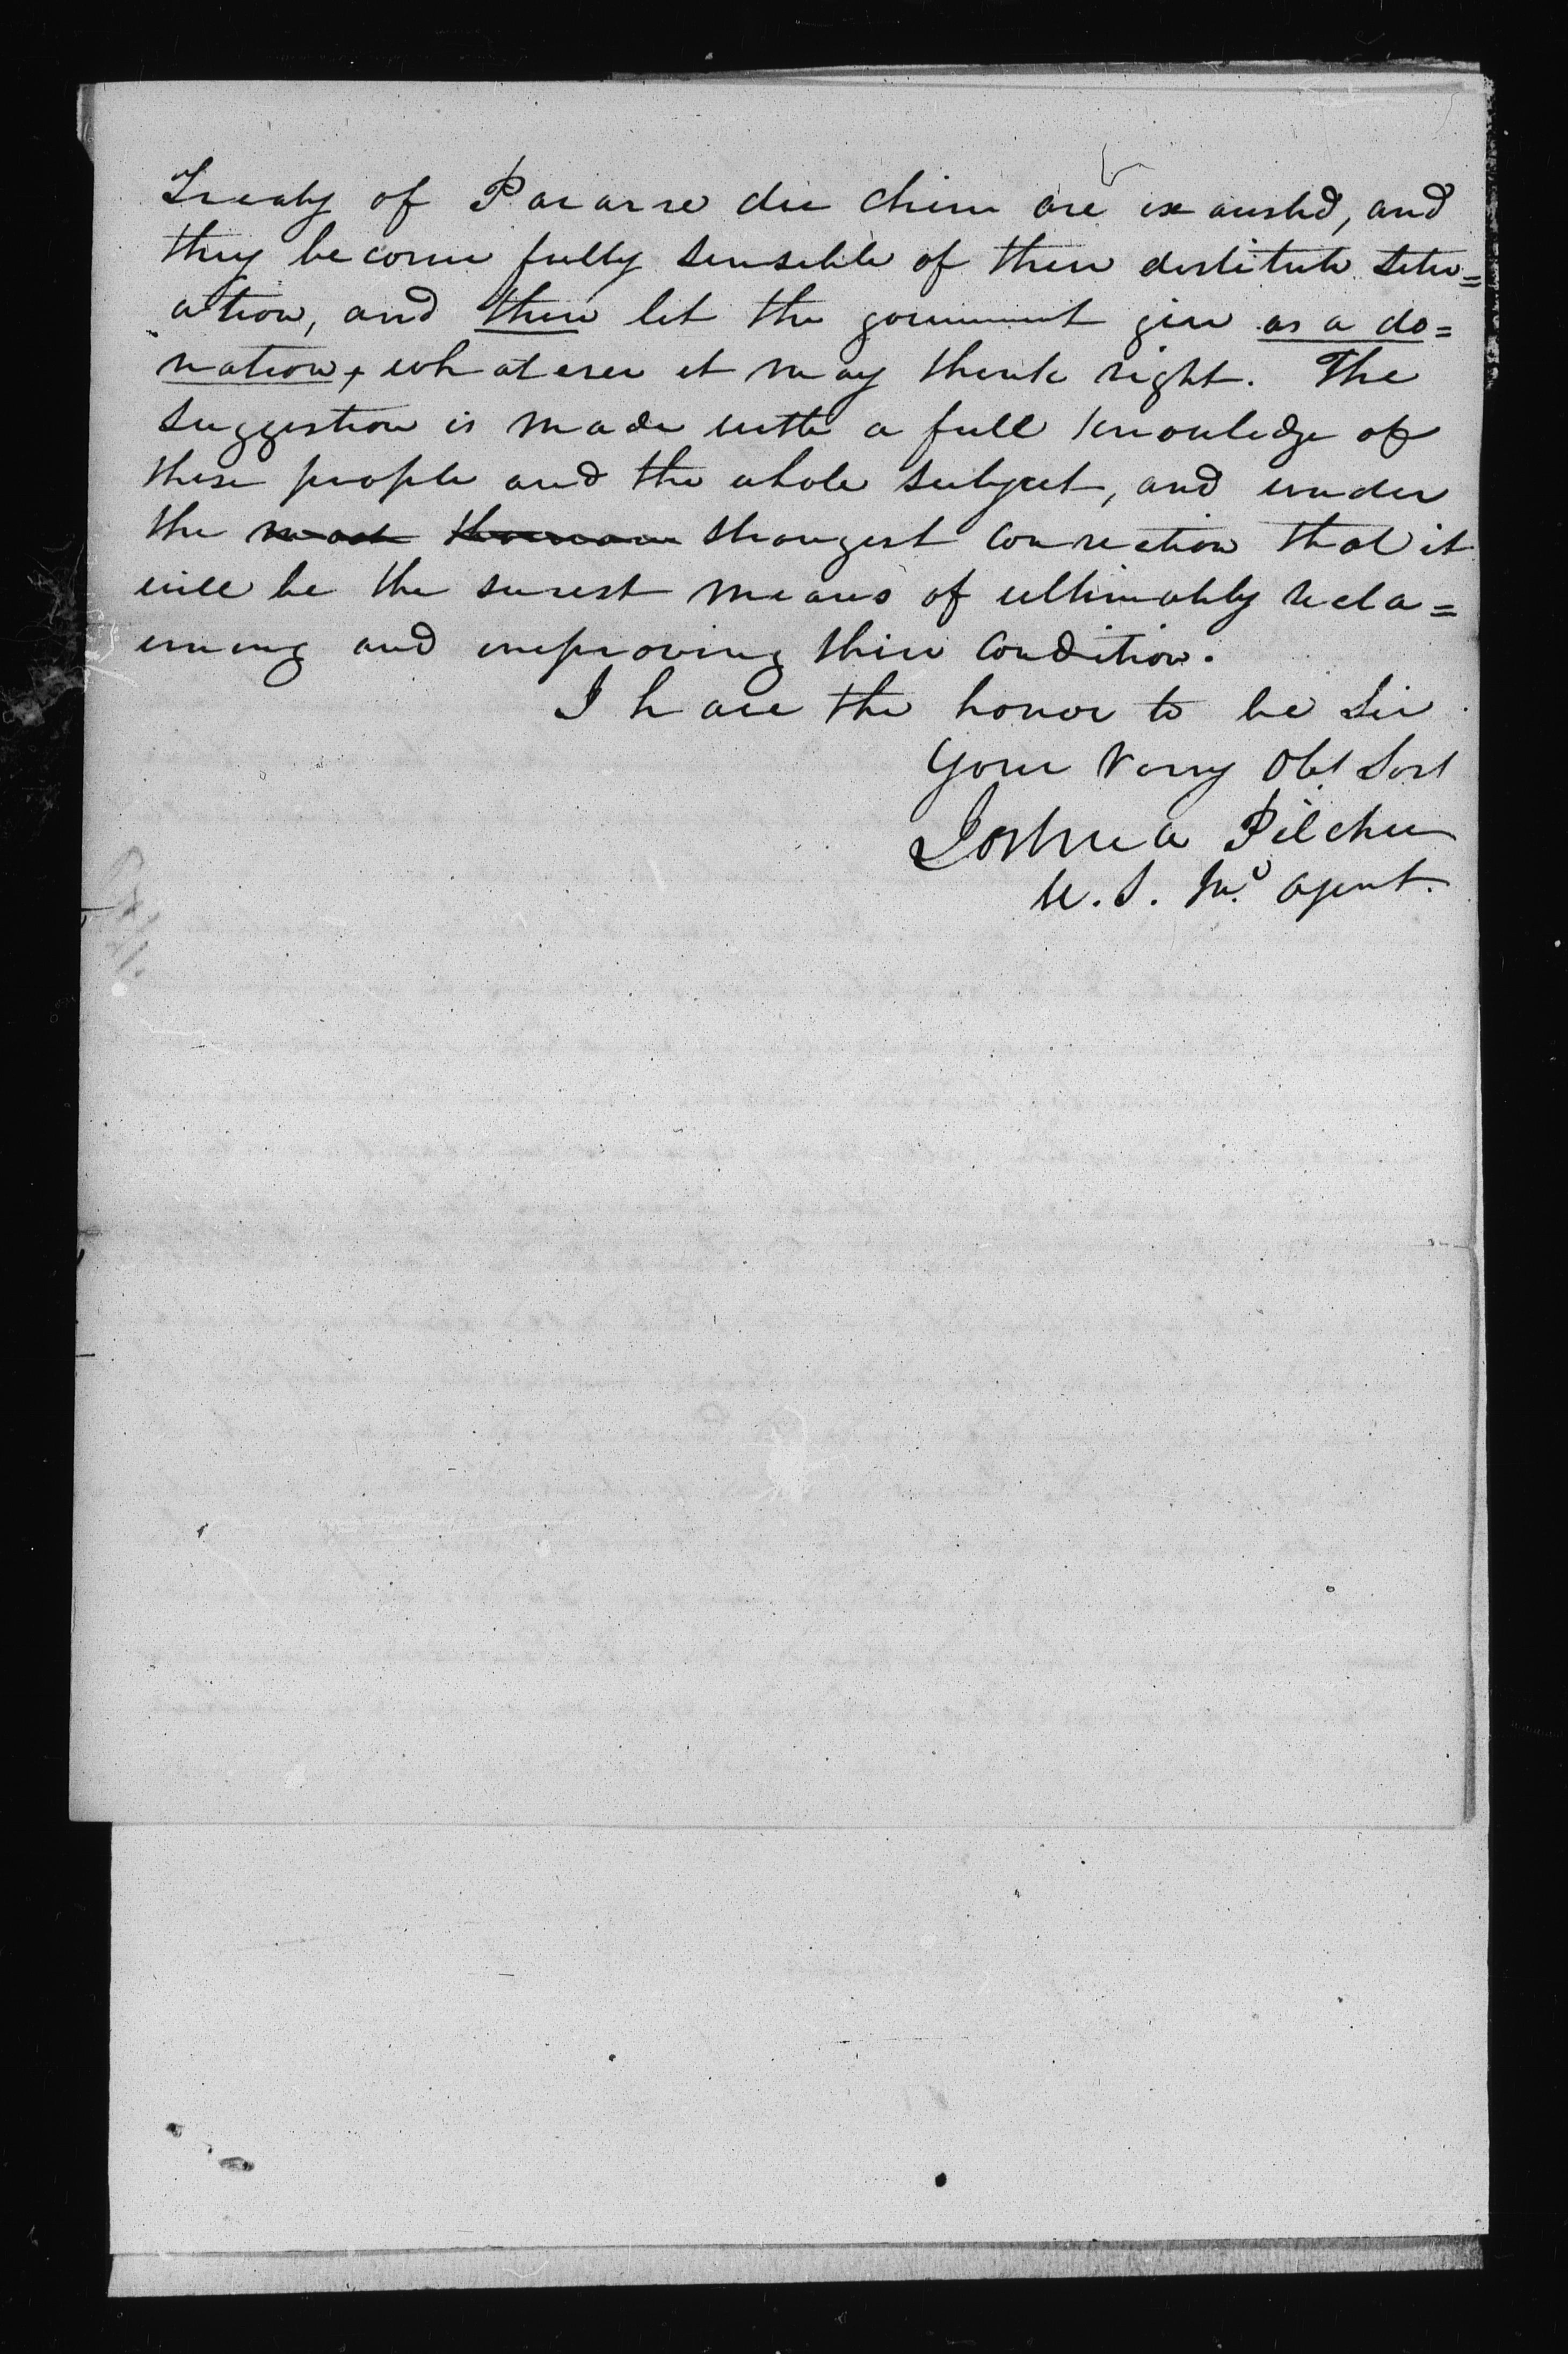 Treaty of Pararre du chien are exausted, and
they become fully sensible of their destitute situ=
ation, and then let the government give as a do=
nation, whatever it may think right. The
suggestion is made with a full knowledge of
these people and the whole subject, and under
the most strongest conviction that it
will be the surest means of ultimately recla=
iming and improving their condition.
I have the honor to be Sir
Your Very Obt Svt
Joshua Pilcher
U.S. In.d agent.